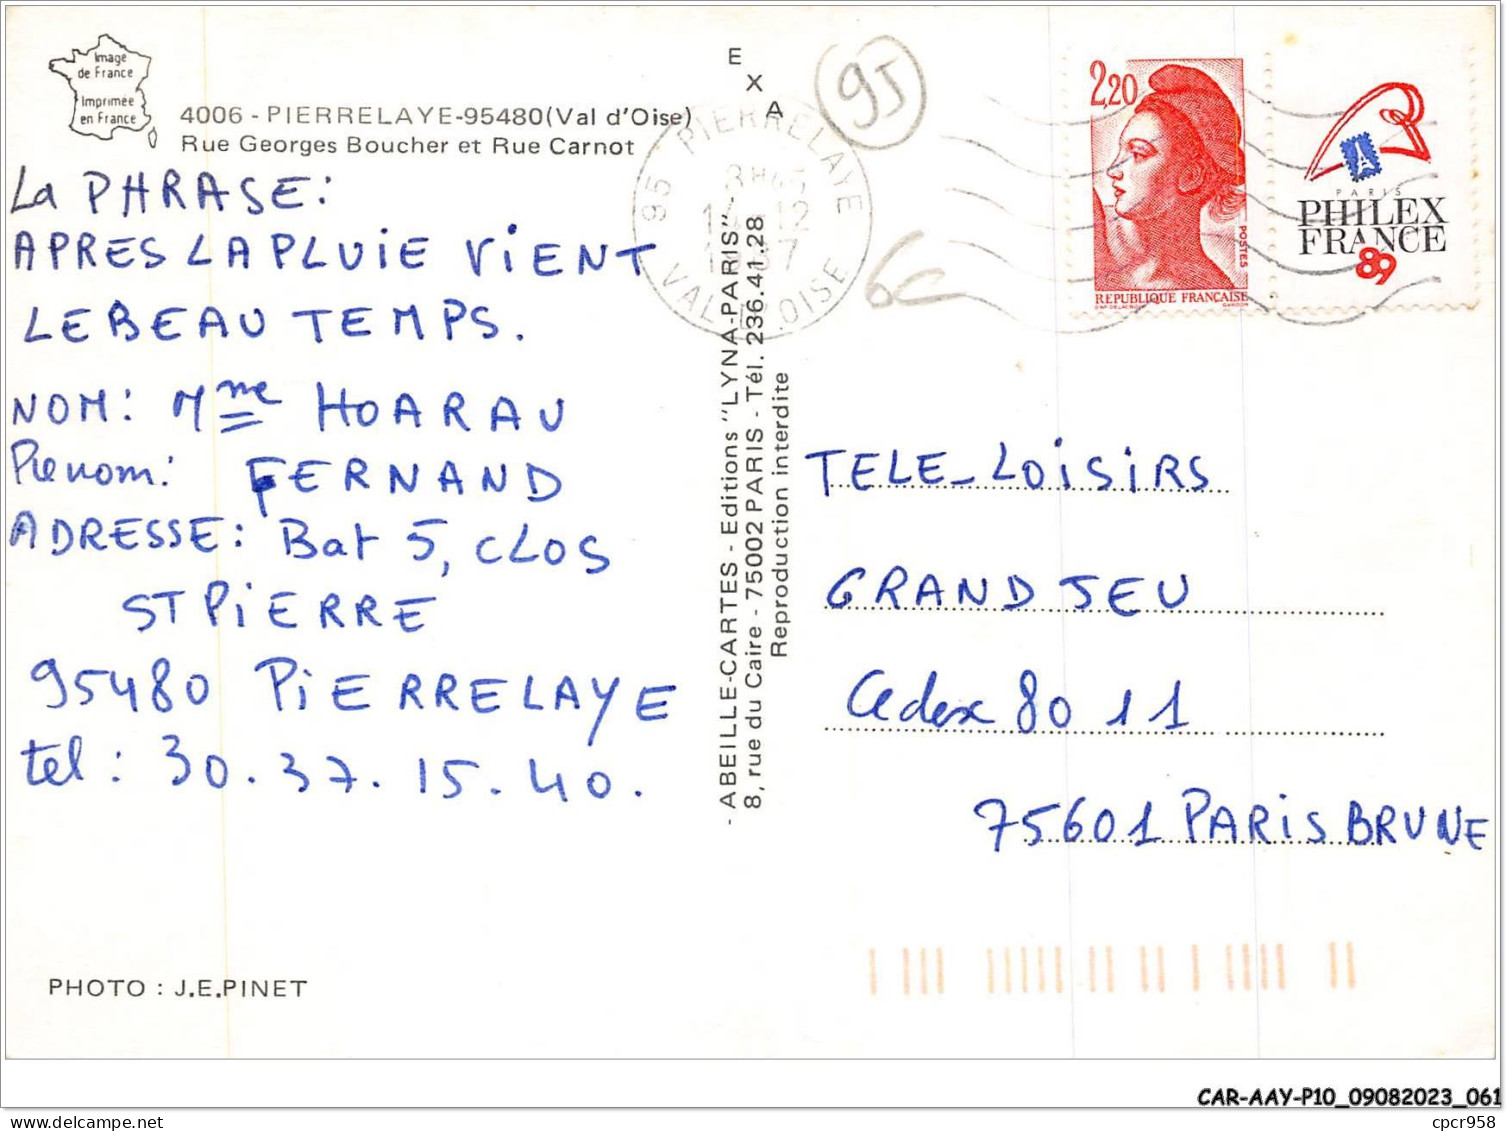 Image
de France
Imprimée
en France
4006 - PIERRELAYE-95480(Val d'Oise)
Rue Georges Boucher et Rue Carnot
La PHRASE:
APRES LA PLUIE VIENT
LE BEAU TEMPS.
NOM: Mme HOARAU
Prenom: FERNAND
ADRESSE: Bat 5, CLOS
ST PIERRE
95480 PIERRELAYE
tel: 30.37.15.40.
PHOTO : J.E.PINET
EXA
- ABEILLE-CARTES - Editions "LYNA-PARIS" -
8, rue du Caire - 75002 PARIS - Tél. 236.41.28
Reproduction interdite
95
PIERRELAYE
95
14-12
VAL D'OISE
6€
2,20
POSTES
REPUBLIQUE FRANÇAISE
PARIS
PHILEX
FRANCE
89
TELE_LOISIRS
GRAND JEU
Cedex 80 11
75601 PARIS BRUNE
CAR-AAY-P10_09082023_061
cpcr958